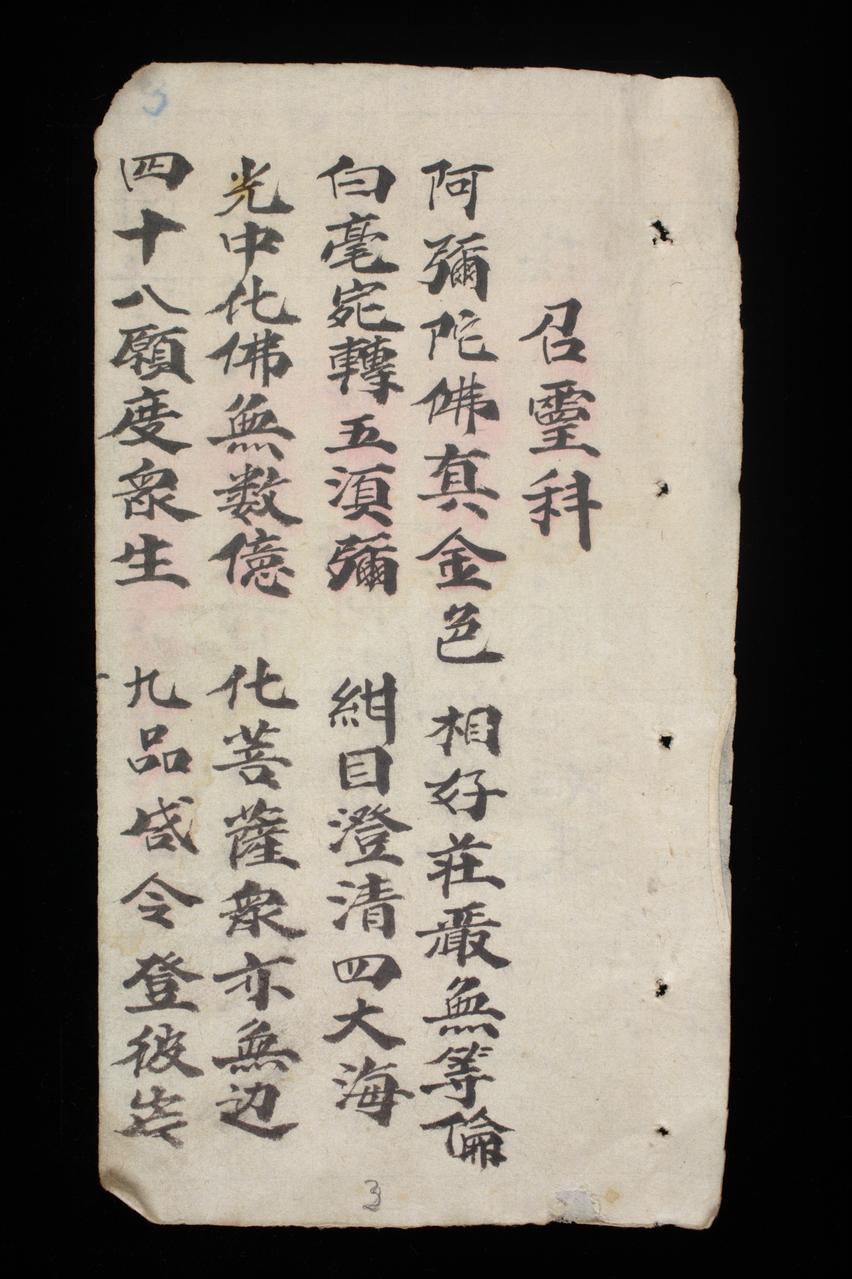 召靈科
阿彌陀佛真金色 相好莊嚴無等倫
白毫宛轉五須彌 紺目澄清四大海
光中化佛無数億 化菩薩衆亦無边
四十八願度衆生 九品咸令登彼岸
3